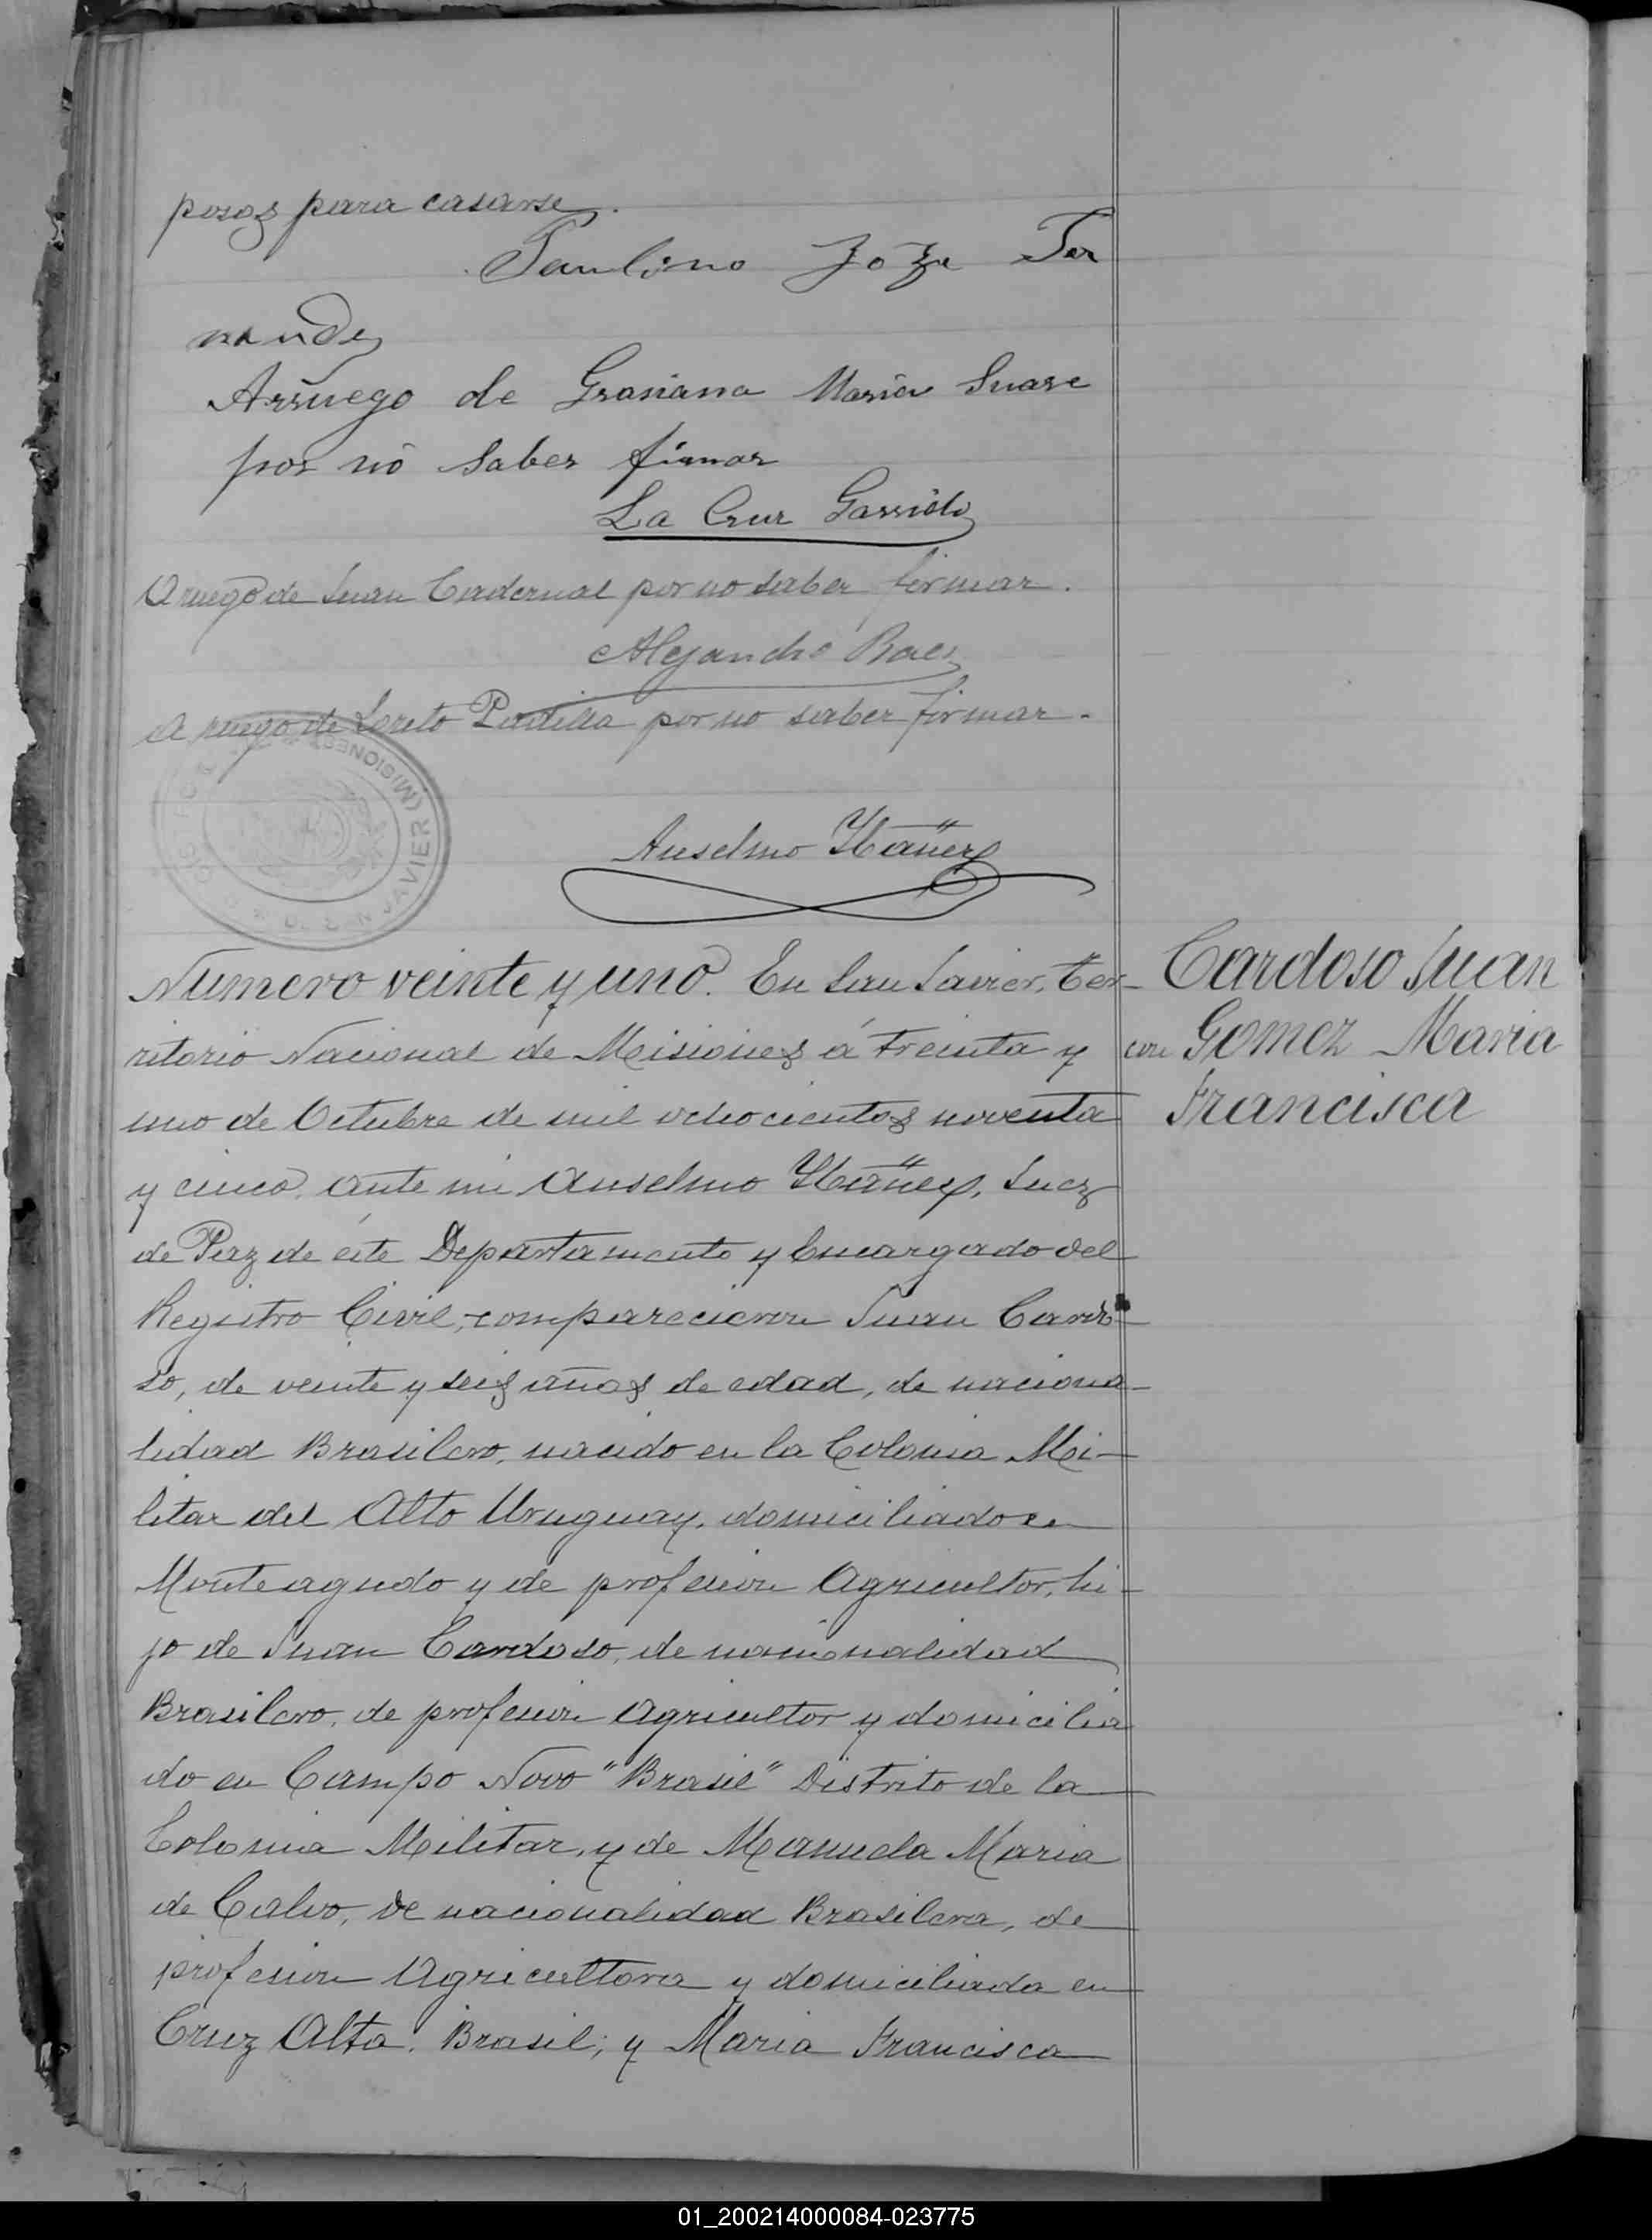 posos para casarse.
Paulino Joze Fer
nandez
Arruego de Grasiana Maria Suare
por nó saber firmar
La Cruz Garrido
A ruego de Juan Cadernal por no saber firmar.
Alejandro Baez
A ruego de Loreto Padilla por no saber firmar.
SAN JAVIER (MISIONES)
Anselmo Ybañez
Numero veinte y uno. En San Javier, Ter-
ritorio Nacional de Misiones á treinta y
uno de Octubre de mil ochocientos noventa
y cinco, ante mi Anselmo Ybañez, Juez
de Paz de éste Departamento y Encargado del
Registro Civil, comparecieron Juan Cardo-
so, de veinte y seis años de edad, de naciona-
lidad Brasilero, nacido en la Colonia Mi-
litar del Alto Uruguay, domiciliado en
Monteagudo y de profesion Agricultor, hi-
jo de Juan Cardoso, de nacionalidad
Brasilero, de profesion Agricultor y domicilia
do en Campo Novo "Brasil" Distrito de la
Colonia Militar, y de Manuela Maria
de Calvo, de nacionalidad Brasilera, de
profesion Agricultora y domiciliada en
Cruz Alta, Brasil; y Maria Francisca
Cardoso Juan
con Gomez Maria
Francisca
01_200214000084-023775